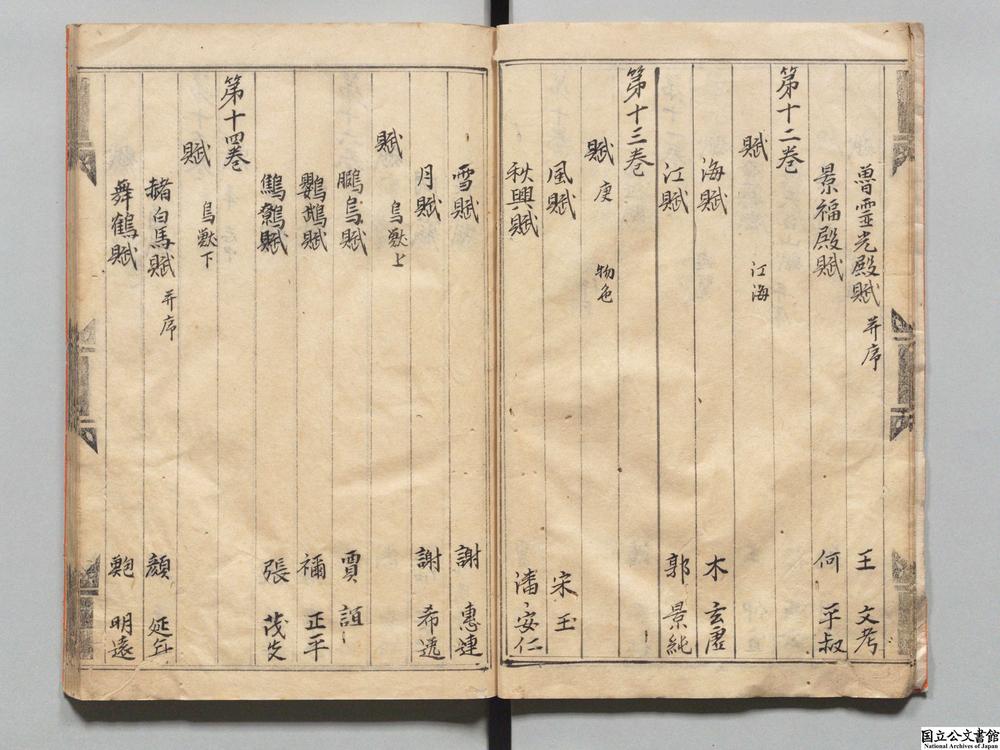 魯靈光殿賦 并序 王 文考
景福殿賦 何 平叔
第十二巻
賦 江海
海賦 木 玄虚
江賦 郭 景純
第十三巻
賦 庚 物色
風賦 宋 玉
秋興賦 潘 安仁
雪賦 謝 惠連
月賦 謝 希逸
賦 鳥獸上
鵩鳥賦 賈 誼
鸚鵡賦 禰 正平
鷦鷯賦 張 茂先
第十四巻
賦 鳥獸下
赭白馬賦 并序 顔 延年
舞鶴賦 鮑 明遠
国立公文書館
National Archives of Japan